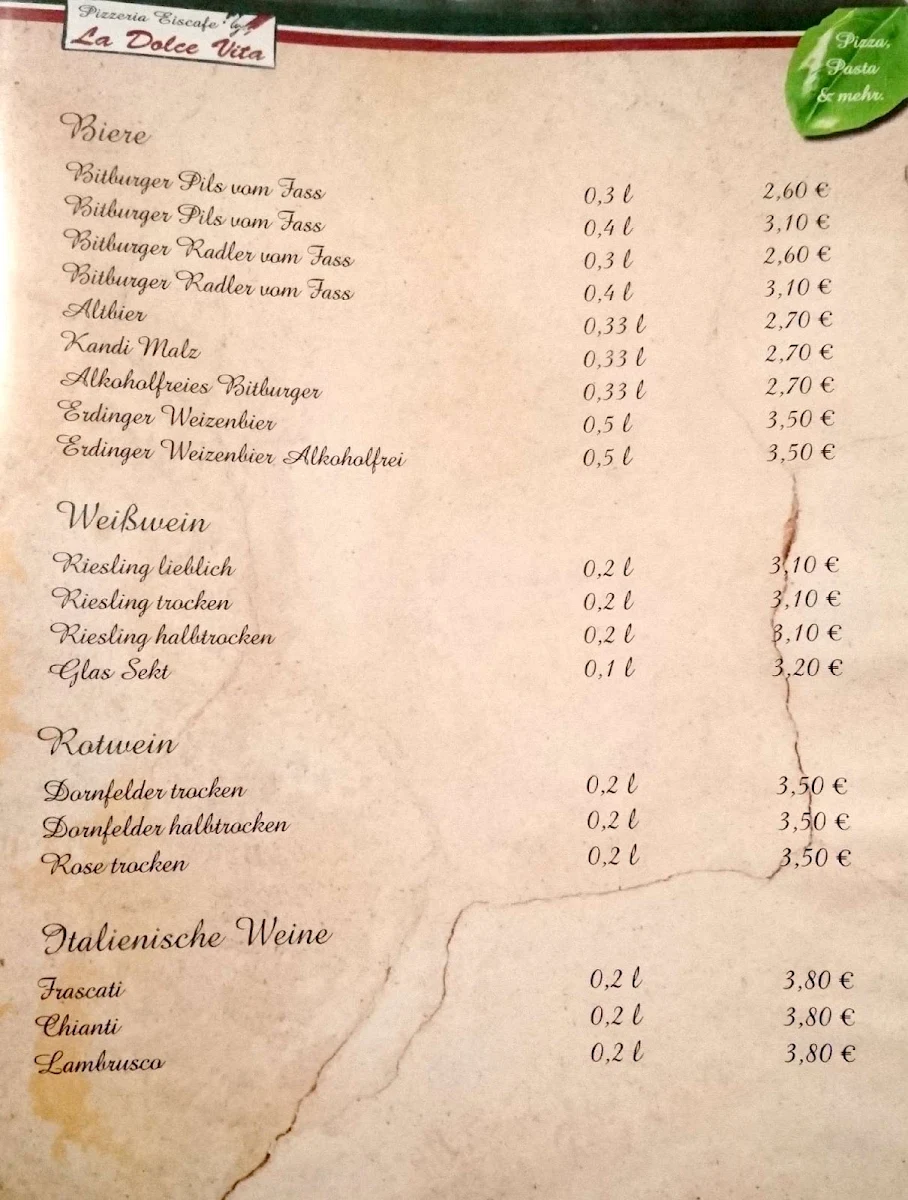 Pizzeria Eiscafe
La Dolce Vita
Pizza,
Pasta
& mehr.
Biere
Bitburger Pils vom Fass 0,3 l 2,60 €
Bitburger Pils vom Fass 0,4 l 3,10 €
Bitburger Radler vom Fass 0,3 l 2,60 €
Bitburger Radler vom Fass 0,4 l 3,10 €
Altbier 0,33 l 2,70 €
Kandi Malz 0,33 l 2,70 €
Alkoholfreies Bitburger 0,33 l 2,70 €
Erdinger Weizenbier 0,5 l 3,50 €
Erdinger Weizenbier Alkoholfrei 0,5 l 3,50 €
Weißwein
Riesling lieblich 0,2 l 3,10 €
Riesling trocken 0,2 l 3,10 €
Riesling halbtrocken 0,2 l 3,10 €
Glas Sekt 0,1 l 3,20 €
Rotwein
Dornfelder trocken 0,2 l 3,50 €
Dornfelder halbtrocken 0,2 l 3,50 €
Rose trocken 0,2 l 3,50 €
Italienische Weine
Frascati 0,2 l 3,80 €
Chianti 0,2 l 3,80 €
Lambrusco 0,2 l 3,80 €